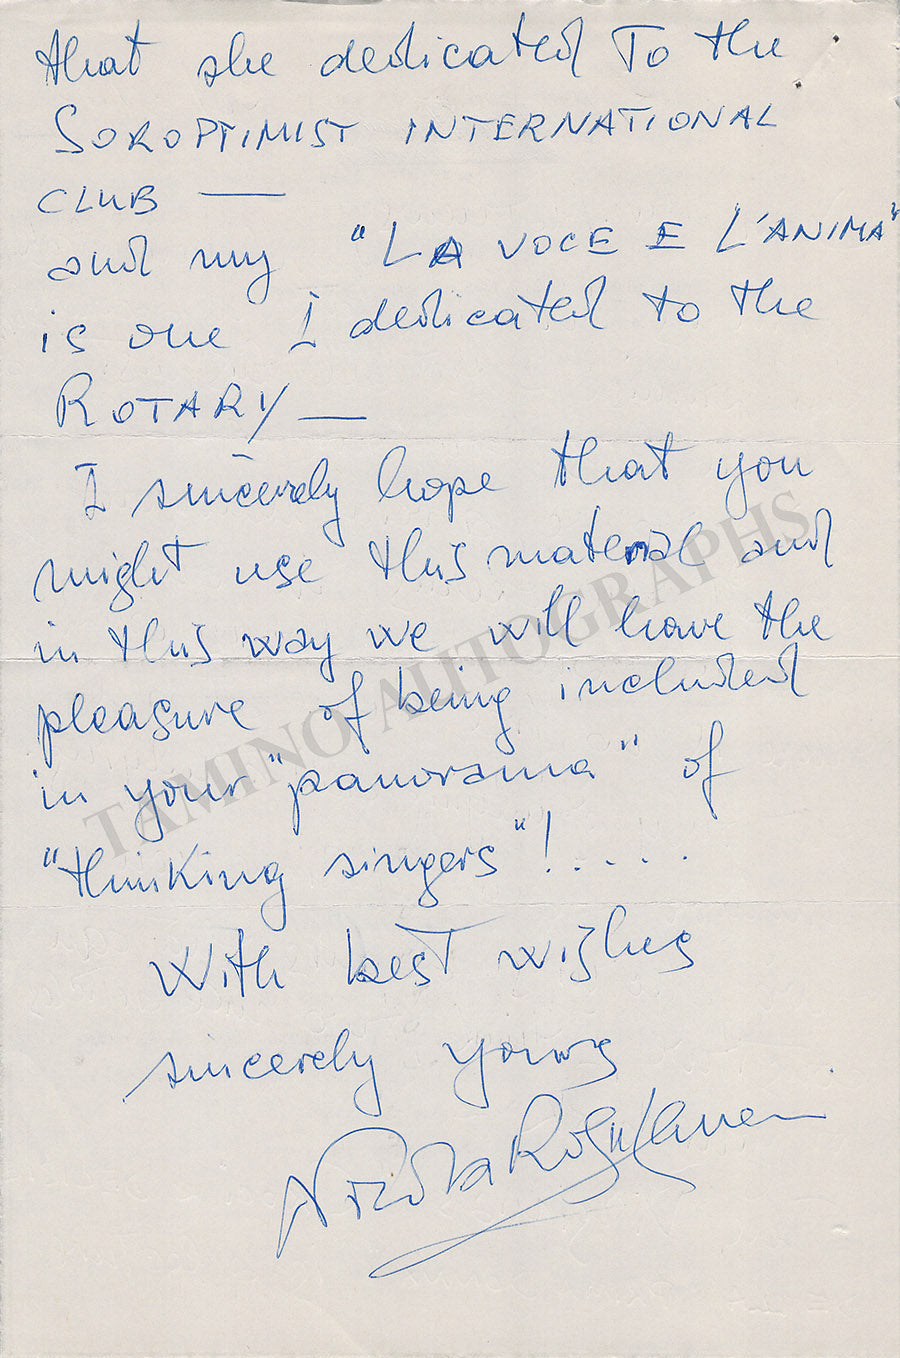 that she dedicated to the
SOROPTIMIST INTERNATIONAL
CLUB —
and my "LA VOCE E L'ANIMA"
is one I dedicated to the
ROTARY —
I sincerely hope that you
might use this material and
in this way we will have the
pleasure of being included
in your "panorama" of
"thinking singers"!.....
With best wishes
sincerely yours
Nicola Rossi Lemeni
TAMINO AUTOGRAPHS